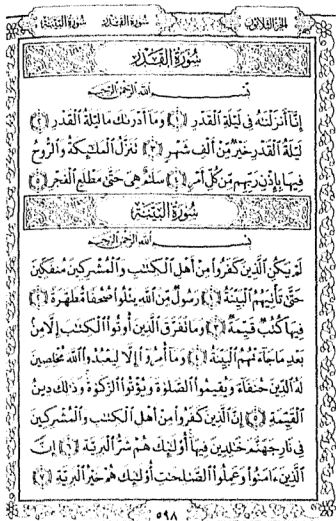 سُورَةُ البَيِّنَةِ سُورَةُ القَدْرِ الجزء الثلاثون
سُورَةُ القَدْرِ
بِسْمِ اللَّهِ الرَّحْمَٰنِ الرَّحِيمِ
إِنَّا أَنزَلْنَٰهُ فِى لَيْلَةِ الْقَدْرِ ﴿١﴾ وَمَا أَدْرَىٰكَ مَا لَيْلَةُ الْقَدْرِ ﴿٢﴾
لَيْلَةُ الْقَدْرِ خَيْرٌ مِّنْ أَلْفِ شَهْرٍ ﴿٣﴾ تَنَزَّلُ الْمَلَٰٓئِكَةُ وَالرُّوحُ
فِيهَا بِإِذْنِ رَبِّهِم مِّن كُلِّ أَمْرٍ ﴿٤﴾ سَلَٰمٌ هِىَ حَتَّىٰ مَطْلَعِ الْفَجْرِ ﴿٥﴾
سُورَةُ البَيِّنَةِ
بِسْمِ اللَّهِ الرَّحْمَٰنِ الرَّحِيمِ
لَمْ يَكُنِ الَّذِينَ كَفَرُوا مِنْ أَهْلِ الْكِتَٰبِ وَالْمُشْرِكِينَ مُنفَكِّينَ
حَتَّىٰ تَأْتِيَهُمُ الْبَيِّنَةُ ﴿١﴾ رَسُولٌ مِّنَ اللَّهِ يَتْلُوا صُحُفًا مُّطَهَّرَةً ﴿٢﴾
فِيهَا كُتُبٌ قَيِّمَةٌ ﴿٣﴾ وَمَا تَفَرَّقَ الَّذِينَ أُوتُوا الْكِتَٰبَ إِلَّا مِنۢ
بَعْدِ مَا جَآءَتْهُمُ الْبَيِّنَةُ ﴿٤﴾ وَمَا أُمِرُوا إِلَّا لِيَعْبُدُوا اللَّهَ مُخْلِصِينَ
لَهُ الدِّينَ حُنَفَآءَ وَيُقِيمُوا الصَّلَوٰةَ وَيُؤْتُوا الزَّكَوٰةَ وَذَٰلِكَ دِينُ
الْقَيِّمَةِ ﴿٥﴾ إِنَّ الَّذِينَ كَفَرُوا مِنْ أَهْلِ الْكِتَٰبِ وَالْمُشْرِكِينَ
فِى نَارِ جَهَنَّمَ خَٰلِدِينَ فِيهَا أُولَٰٓئِكَ هُمْ شَرُّ الْبَرِيَّةِ ﴿٦﴾ إِنَّ
الَّذِينَ ءَامَنُوا وَعَمِلُوا الصَّٰلِحَٰتِ أُولَٰٓئِكَ هُمْ خَيْرُ الْبَرِيَّةِ ﴿٧﴾
٥٩٨